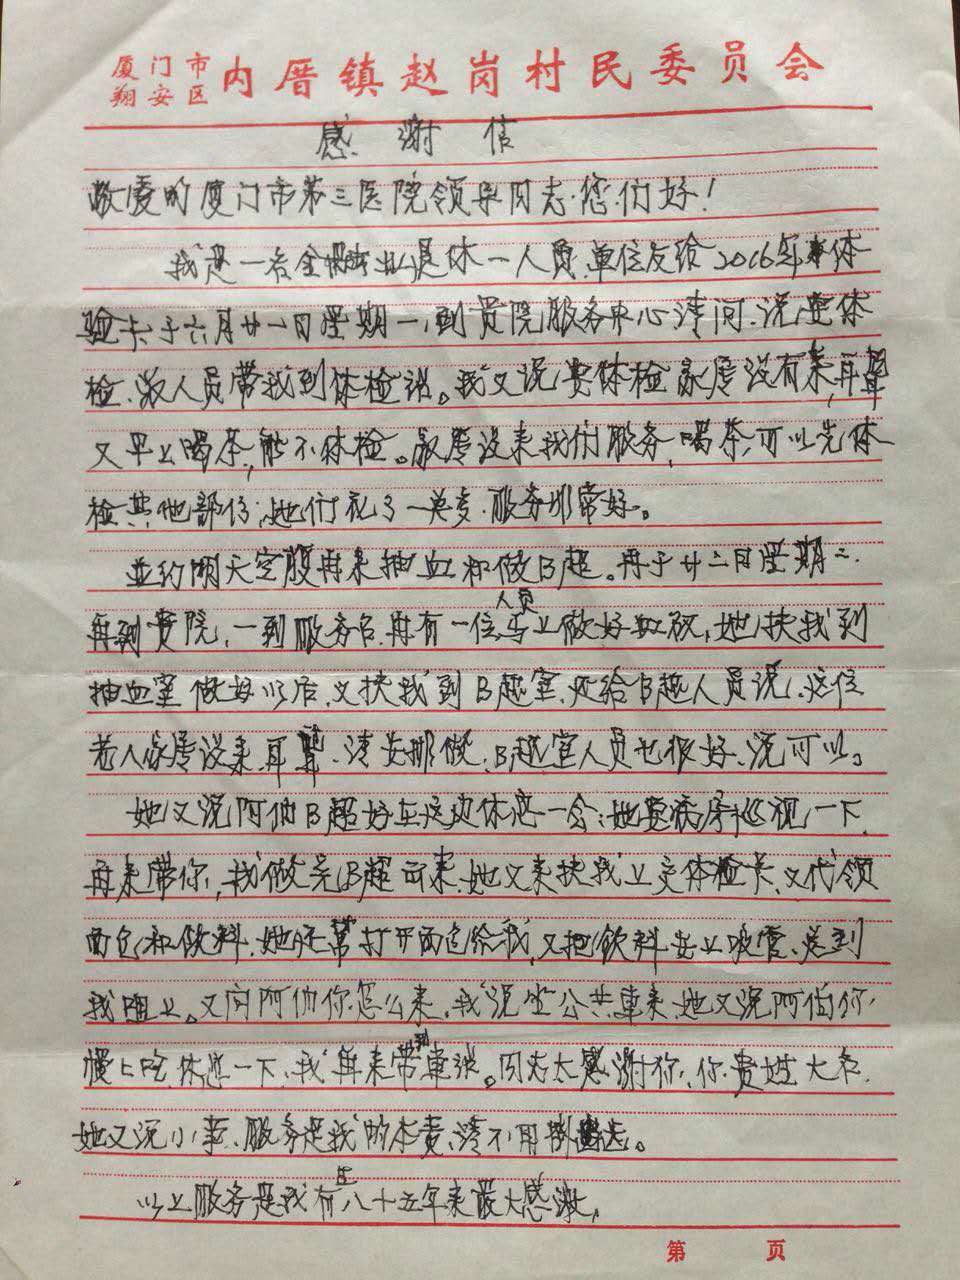 厦门市
翔安区
内厝镇赵岗村民委员会
感谢信
敬爱的厦门市第三医院领导同志.您们好!
我是一名企业退休一人员,单位发给2016年体
验卡于六月廿一日星期一,到贵院服务中心请问.说要体
检、派人员带我到体检说。我又说要体检家属没有来,耳聋
又早上喝茶,能不体检。家属没来我们服务,喝茶可以先体
检其他部份,她们花了一英多.服务非常好。
並约明天空腹再来抽血和做B超。再于廿二日星期三.
再到贵院,一到服务台再有一位人员马上做好,她扶我到
抽血室做好以后,又扶我到B超室.还给B超人员说、这位
老人家属没来.耳聋.请安排做、B超室人员也很好、说可以。
她又说阿伯B超好在这边休息一会;她要病房巡视一下.
再来带你,我做完B超而来,她又来扶我上交体检卡,又代领
面包和饮料.她还帮打开面包给我,又把饮料去上吸管、送到
我咀上。又问阿伯你怎么来,我说坐公共車来.她又说阿伯你
慢上吃休息一下、我再来带到車站。同志太感谢你,你贵姓大名.
她又说小事、服务是我的本责,请不用。
以上服务是我有生八十五年来最大感谢,
第 页